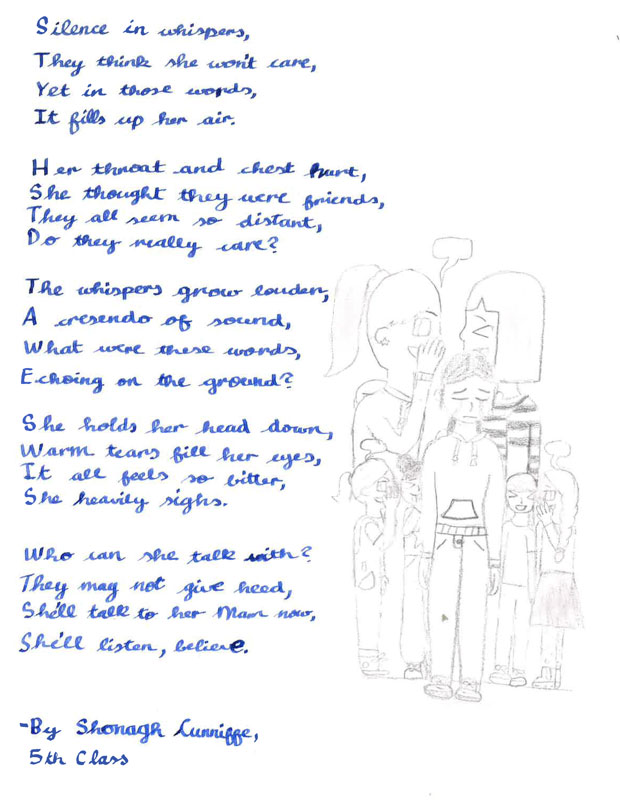 Silence in whispers,
They think she won't care,
Yet in those words,
It fills up her air.
Her throat and chest hurt,
She thought they were friends,
They all seem so distant,
Do they really care?
The whispers grow louder,
A cresendo of sound,
What were these words,
Echoing on the ground?
She holds her head down,
Warm tears fill her eyes,
It all feels so bitter,
She heavily sighs.
Who can she talk with?
They may not give heed,
She'll talk to her Mam now,
She'll listen, believe.
-By Shonagh Cunniffe,
5th Class